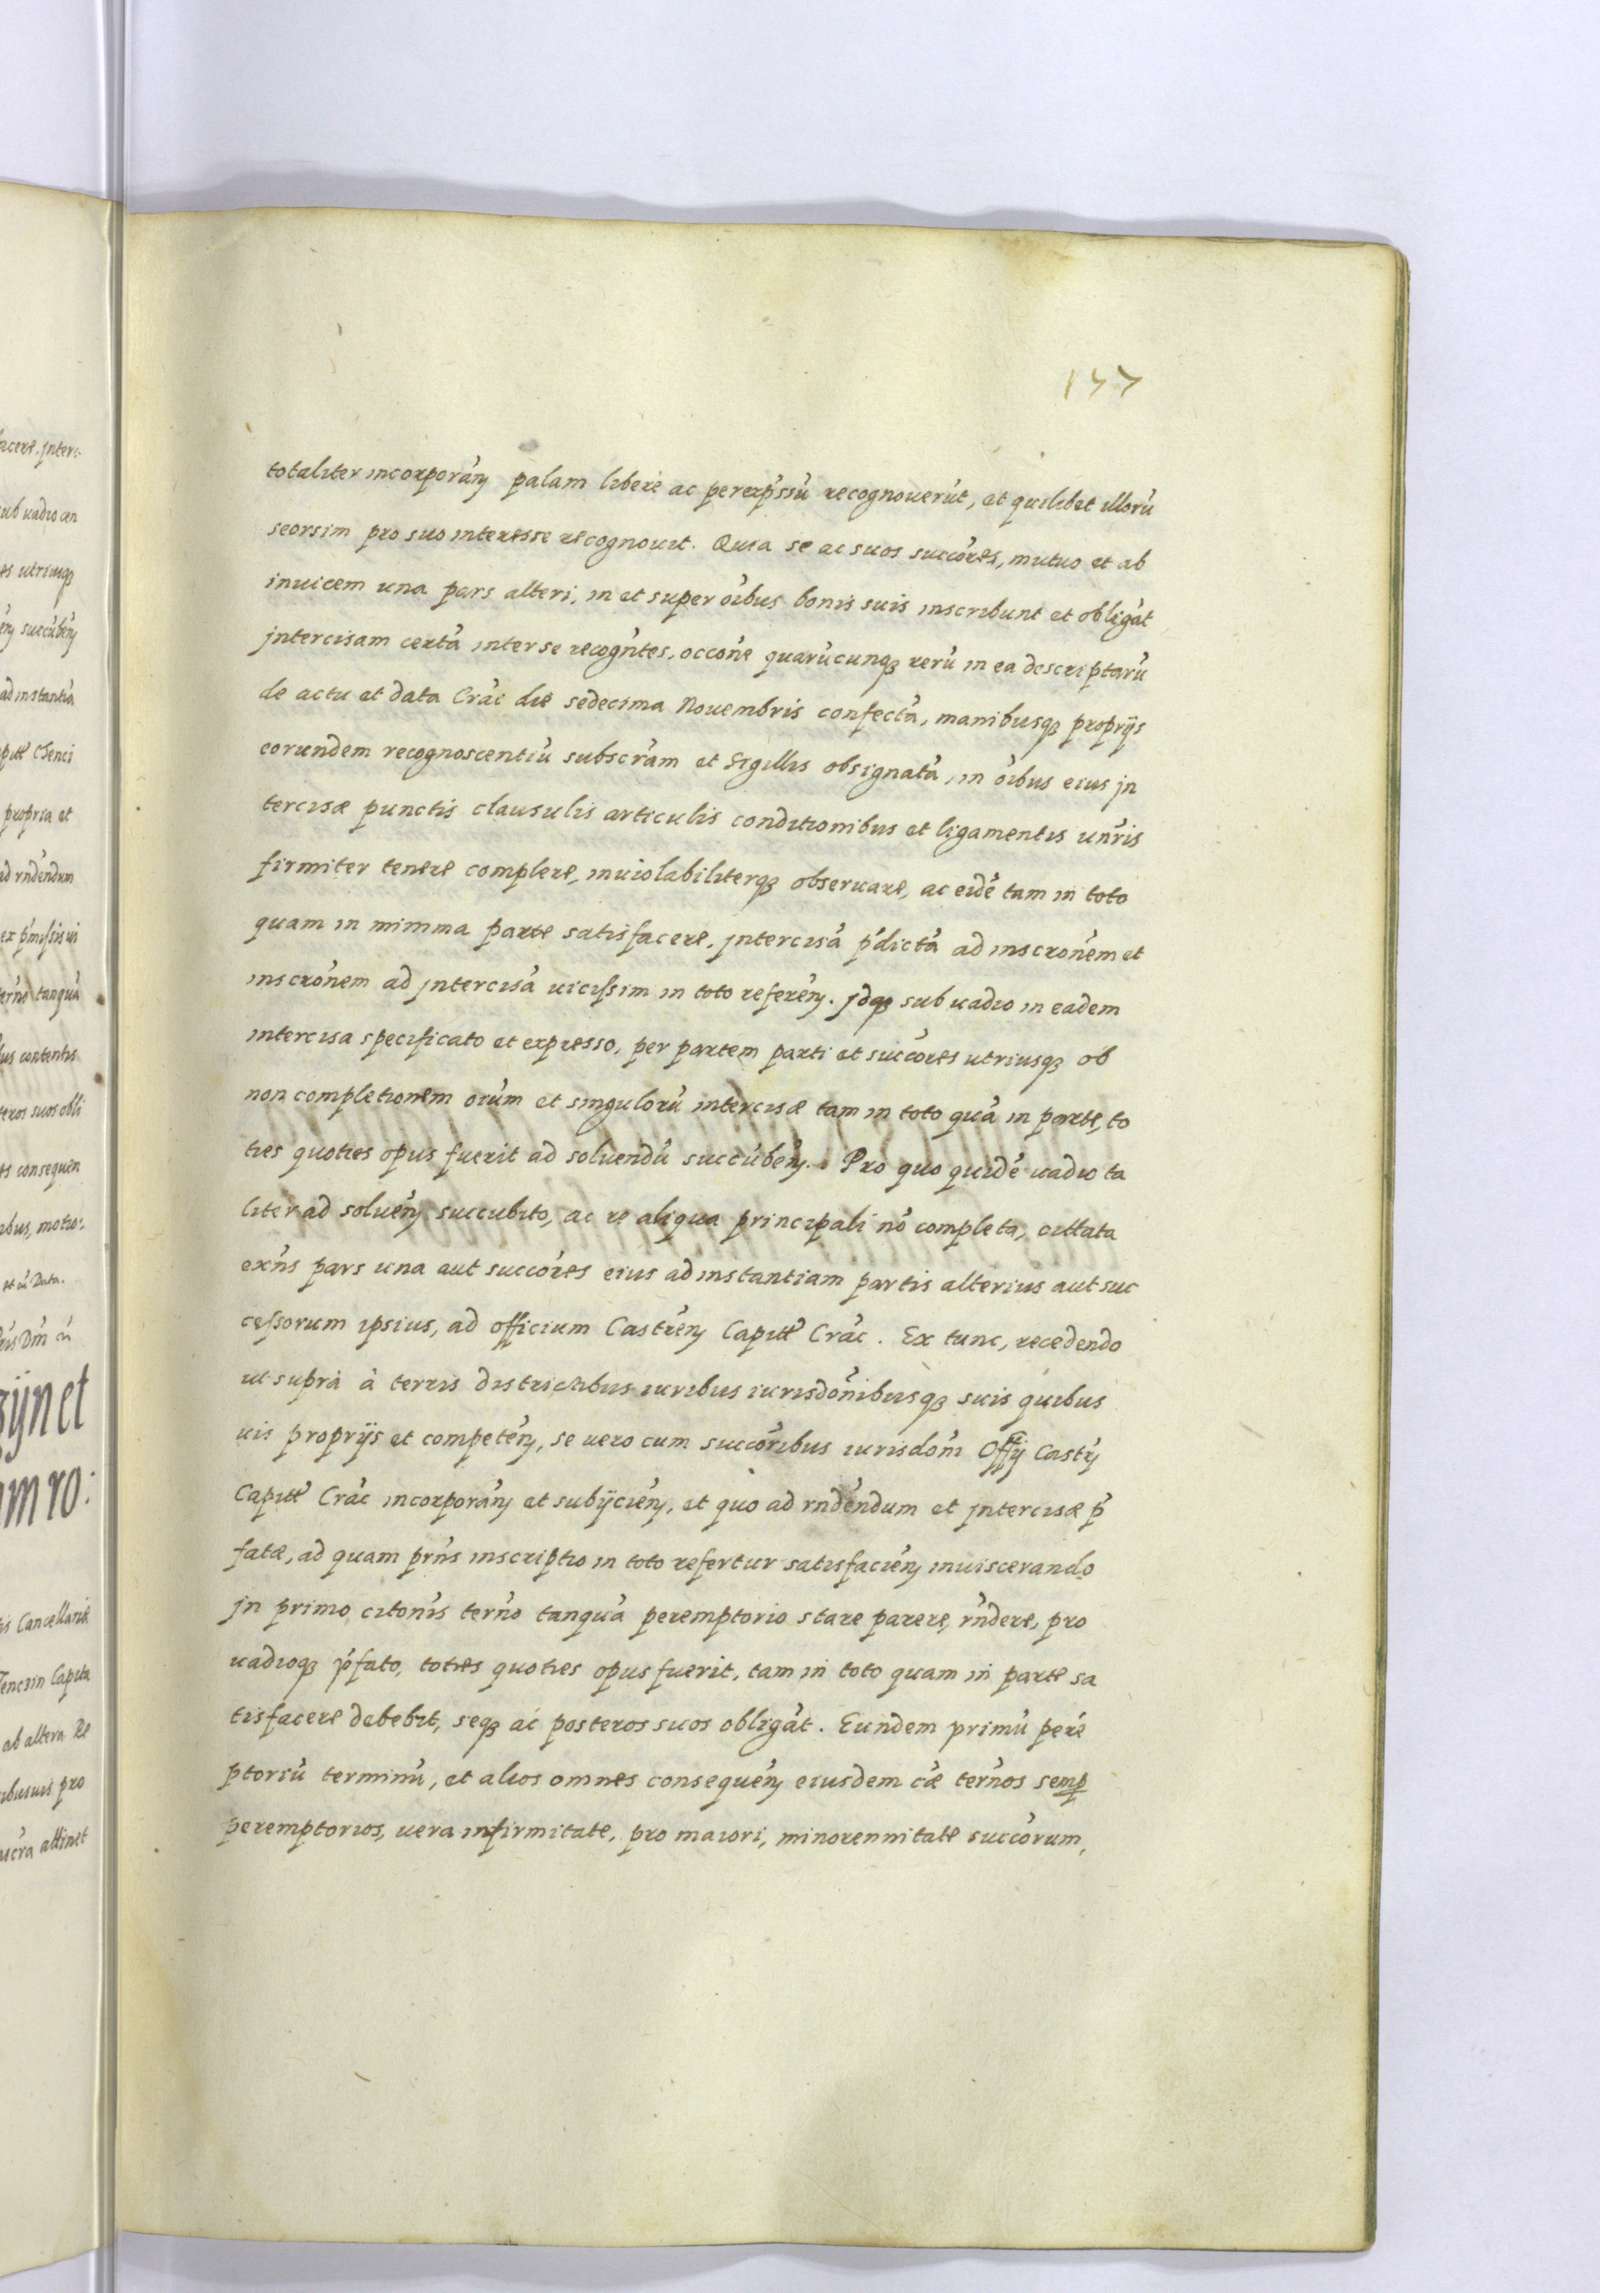 177
totaliter incorporan̄ palam libere ac per exp̄ssū recognouerūt, et quilibet illorū
seorsim pro suo interesse recognouit. Quia se ac suos succōres, mutuo et ab
inuicem una pars alteri, in et super oībus bonis suis inscribunt et obligāt
jntercisam certā inter se recogn̄tes, occōne quarūcunqꝫ rerū in ea descriptarū
de actu et data Crāc die sedecima Nouembris confectā, manibusqꝫ proprijs
eorundem recognoscentiū subscrām et Sigillis obsignatā, in oībus eius jn
tercisæ punctis clausulis articulis conditionibus et ligamentis un̄ris
firmiter tenere complere, inuiolabiliterqꝫ obseruare, ac eidē tam in toto
quam in minima parte satisfacere, jntercisā p̄dictā ad inscrōnem et
inscrōnem ad jntercisā uicissim in toto referēn. jdqꝫ sub uadio in eadem
intercisa specificato et expresso, per partem parti et succōres utriusqꝫ ob
non completionem oīum et singulorū intercisæ tam in toto quā in parte, to
ties quoties opus fuerit ad soluendū succūbēn. Pro quo quidē uadio ta
liter ad soluēn succubito, ac re aliqua principali nō completa, cittata
exn̄s pars una aut succōres eius ad instantiam partis alterius aut suc
cessorum ipsius, ad officium Castrēn Capittē Crāc. Ex tunc, recedendo
ut suprà à terris districtibus iuribus iurisdōnibusqꝫ suis quibus
uis proprijs et competēn, se uero cum succōribus iurisdōni Offȳ Castrēn
Capittē Crāc incorporān et subijciēn, et quo ad rn̄dēndum et jntercisæ p̄
fatæ, ad quam prn̄s inscriptio in toto refertur satisfaciēn inuiscerando
jn primo citonīs termo tanquā peremptorio stare parere, rn̄dere, pro
uadioqꝫ p̄fato, toties quoties opus fuerit, tam in toto quam in parte sa
tisfacere debebit, seqꝫ ac posteros suos obligāt. Eundem primū perē
ptoriū terminū, et alios omnes consequēn eiusdem cāe termos semp̱
peremptorios, uera infirmitate, pro maiori, minorennitate succōrum,